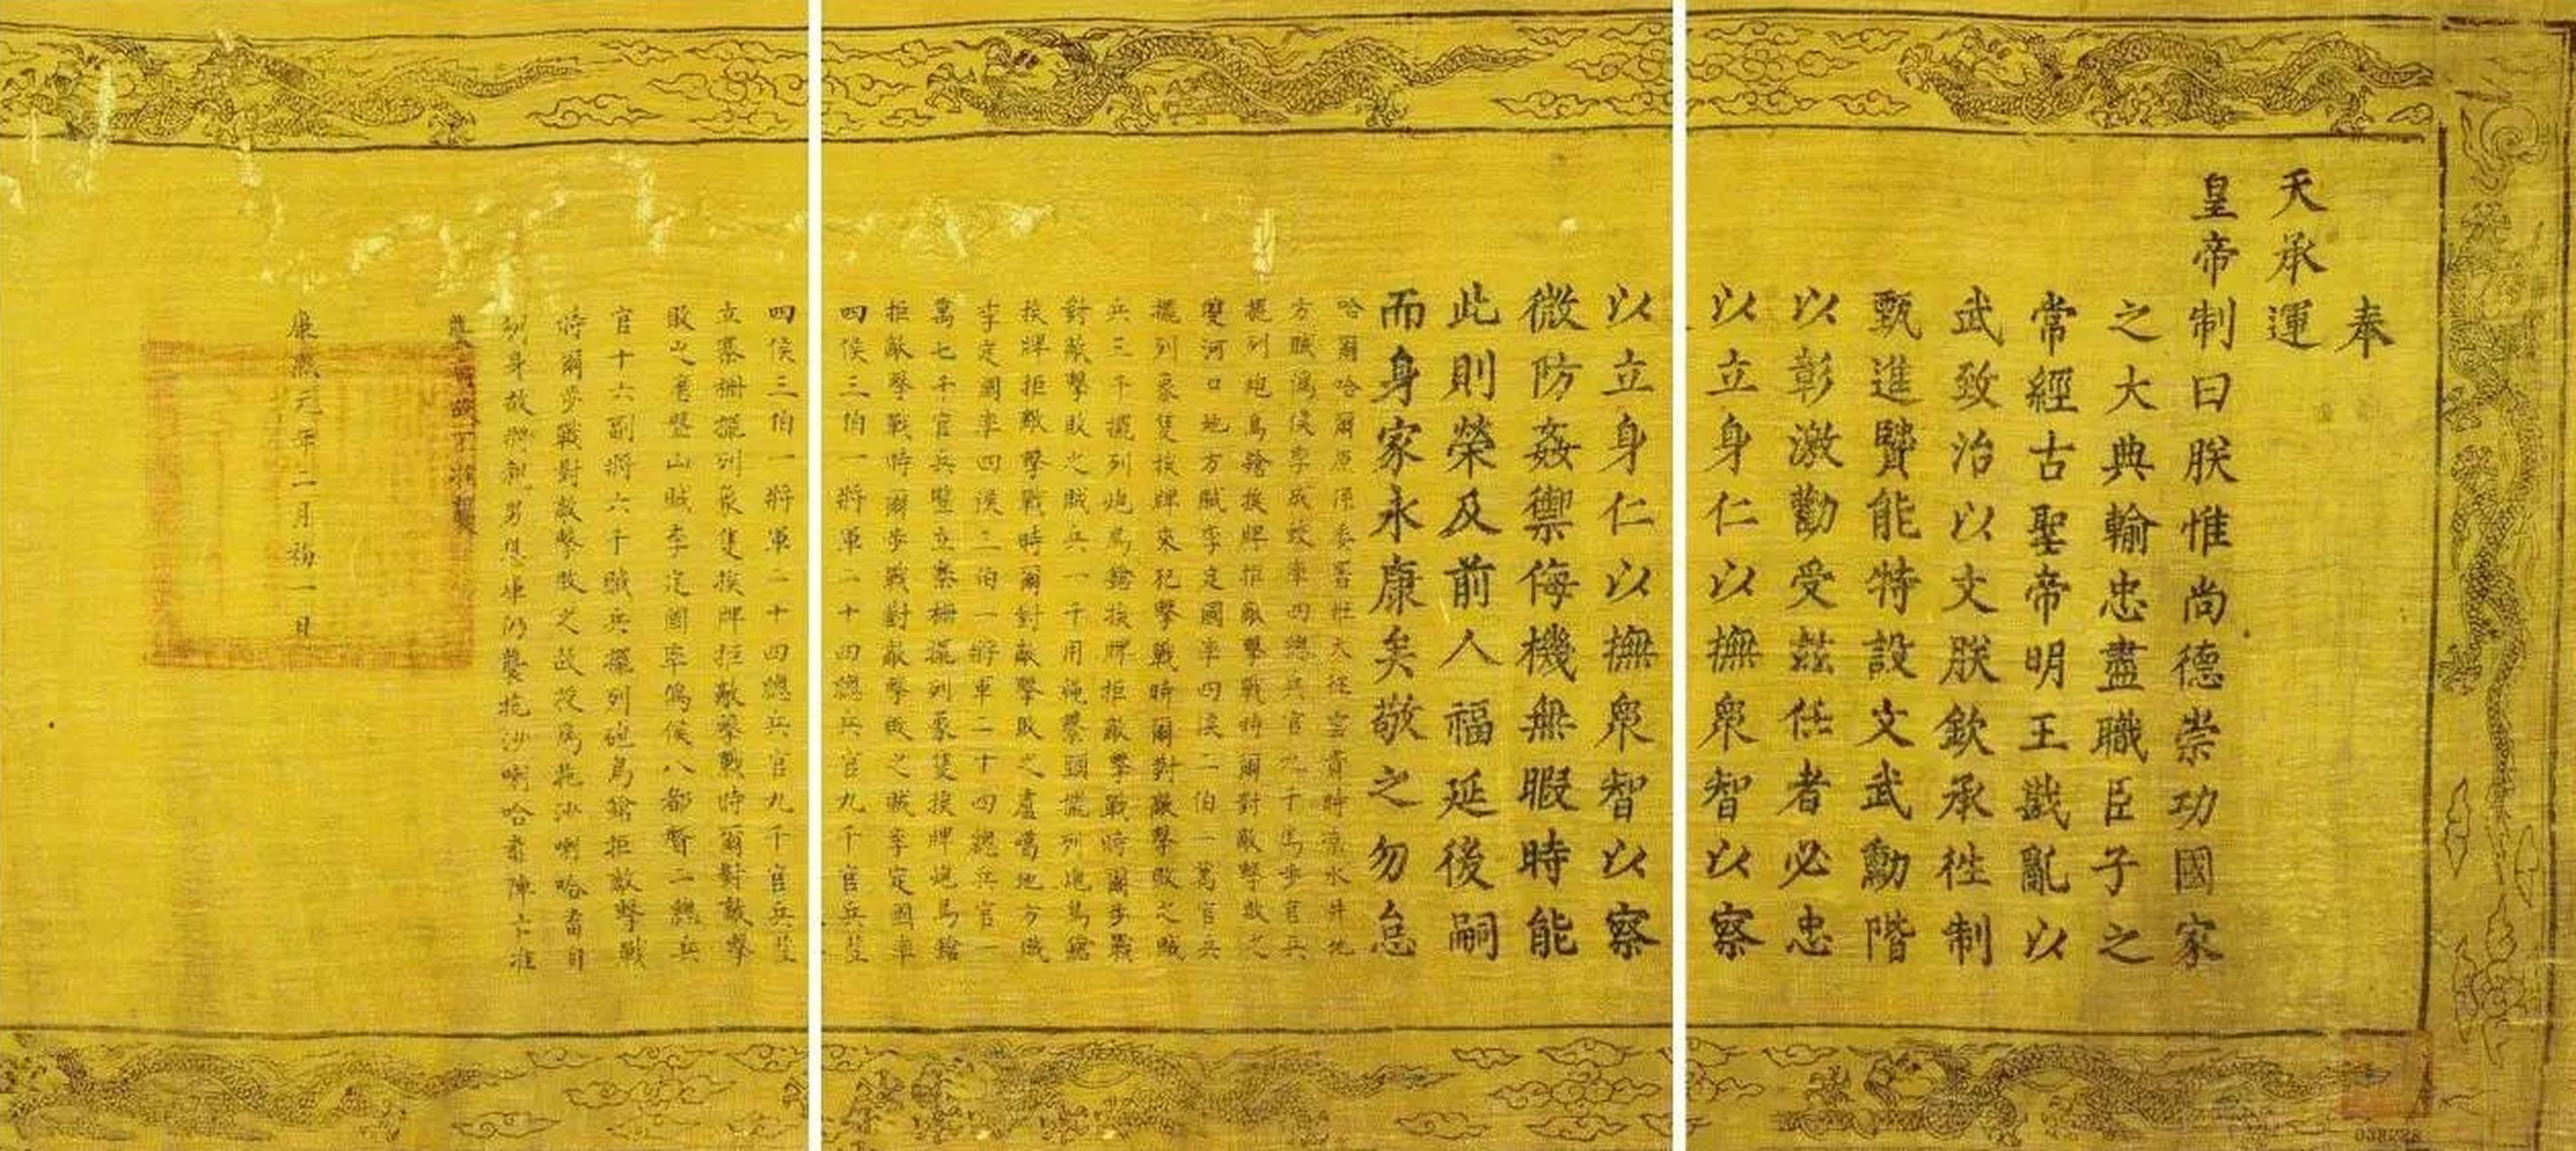 奉
天承運
皇帝制曰朕惟尚德崇功國家
之大典輸忠盡職臣子之
常經古聖帝明王戡亂以
武致治以文朕欽承往制
甄進賢能特設文武勳階
以彰激勸受茲任者必忠
以立身仁以撫眾智以察
以立身仁以撫眾智以察
微防姦禦侮機無暇時能
此則榮及前人福延後嗣
而身家永康矣敬之勿怠
哈爾哈爾原係委署 大 雲貴時 水井地
方賊偽侯李 率四總兵官九千馬步官兵
擺列炮鳥鎗挨牌拒敵擊戰時爾對敵擊敗之
雙河口地方賊李定國率四侯二伯一萬官兵
擺列象隻挨牌來犯擊戰時爾對敵擊敗之賊
兵三千擺列炮鳥鎗挨牌拒敵擊戰時爾步戰
對敵擊敗之賊兵一千用 擺列炮鳥鎗
挨牌拒敵擊戰時爾對敵擊敗之盧噶地方賊
李定國率四侯三伯一將軍二十四總兵官一
萬七千官兵豎立寨柵擺列象隻挨牌炮鳥鎗
拒敵擊戰時爾步戰對敵擊敗之賊李定國率
四侯三伯一將軍二十四總兵官九千官兵豎
四侯三伯一將軍二十四總兵官九千官兵豎
立寨柵擺列象隻挨牌拒敵擊戰時爾對敵擊
敗之磨盤山賊李定國率偽侯八都督二總兵
官十六副將六千賊兵擺列炮鳥鎗拒敵擊戰
時爾步戰對敵擊敗之故授為拖沙喇哈番自
身故將親男 仍襲拖沙喇哈番 亡准
康熙元年二月初一日